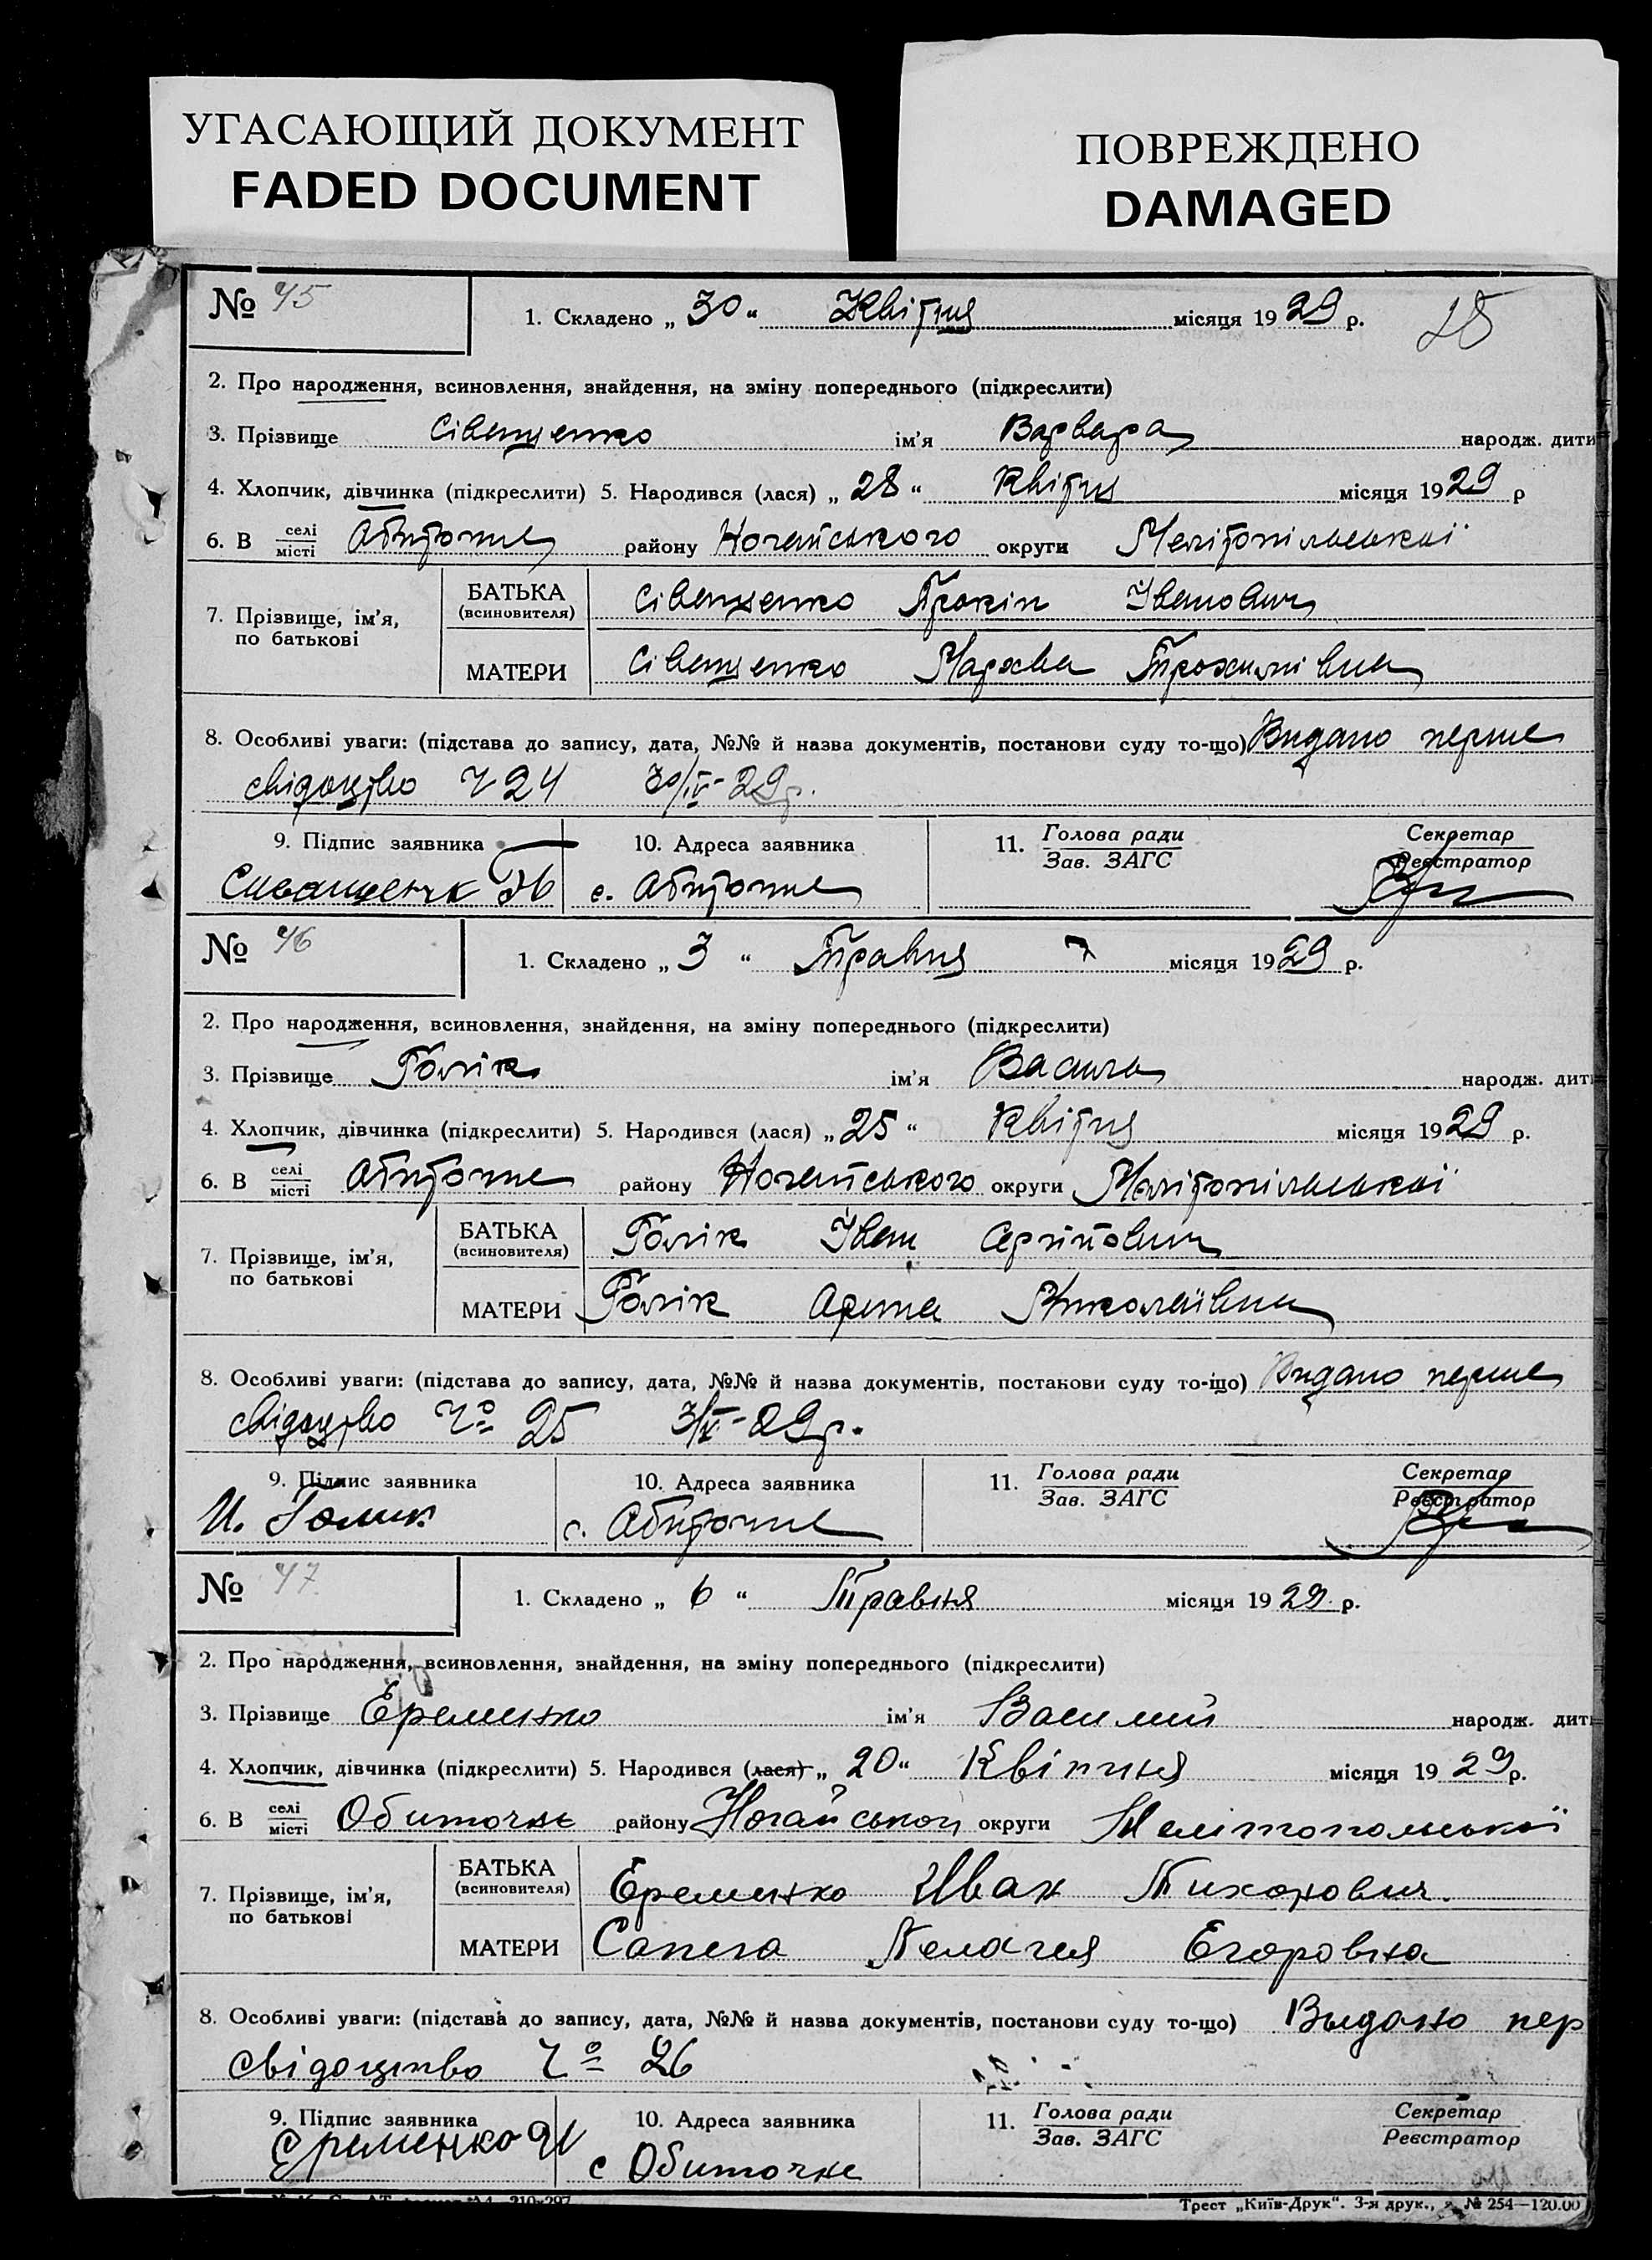 УГАСАЮЩИЙ ДОКУМЕНТ
FADED DOCUMENT
ПОВРЕЖДЕНО
DAMAGED
№ 45
1. Складено „ 30 “ Квітня місяця 1929 р.
2. Про народження, всиновлення, знайдення, на зміну попереднього (підкреслити)
3. Прізвище Сіващенко ім'я Варвара народж. дити
4. Хлопчик, дівчинка (підкреслити) 5. Народився (лася) „ 28 “ Квітня місяця 1929 р
6. В селі/місті Абиточне району Ногайського округи Мелітопільської
7. Прізвище, ім'я, по батькові
БАТЬКА (всиновителя) Сіващенко Прокіп Іванович
МАТЕРИ Сіващенко Мархва
8. Особливі уваги: (підстава до запису, дата, №№ й назва документів, постанови суду то-що) Видано перше
свідоцтво Ч 24 30/IV-29р.
9. Підпис заявника 10. Адреса заявника 11. Голова ради/Зав. ЗАГС Секретар/Реєстратор
с. Абиточне
№ 46
1. Складено „ 3 “ Травня місяця 1929 р.
2. Про народження, всиновлення, знайдення, на зміну попереднього (підкреслити)
3. Прізвище Голік ім'я Василь народж. дит
4. Хлопчик, дівчинка (підкреслити) 5. Народився (лася) „ 25 “ Квітня місяця 1929 р.
6. В селі/місті Абиточне району Ногайського округи Мелітопільської
7. Прізвище, ім'я, по батькові
БАТЬКА (всиновителя) Голік Іван Сергійович
МАТЕРИ Голік Орина Миколаївна
8. Особливі уваги: (підстава до запису, дата, №№ й назва документів, постанови суду то-що) Видано перше
свідоцтво Ч° 25 3/V-29р.
9. Підпис заявника 10. Адреса заявника 11. Голова ради/Зав. ЗАГС Секретар/Реєстратор
И. Голик с. Абиточне
№ 47
1. Складено „ 6 “ Травня місяця 1929. р.
2. Про народження, всиновлення, знайдення, на зміну попереднього (підкреслити)
3. Прізвище Еременко ім'я Василий народж. дит
4. Хлопчик, дівчинка (підкреслити) 5. Народився (лася) „ 20 “ Квітня місяця 1929 р.
6. В селі/місті Обиточне району округи Мелітопольської
7. Прізвище, ім'я, по батькові
БАТЬКА (всиновителя) Еременко Иван Тихонович.
МАТЕРИ Сапега Пелагея Егоровна
8. Особливі уваги: (підстава до запису, дата, №№ й назва документів, постанови суду то-що) Выдано пер
свідоцтво Ч° 26
9. Підпис заявника 10. Адреса заявника 11. Голова ради/Зав. ЗАГС Секретар/Реєстратор
Еременко с Обиточне
Трест „Київ-Друк“. 3-я друк., № 254—120.00